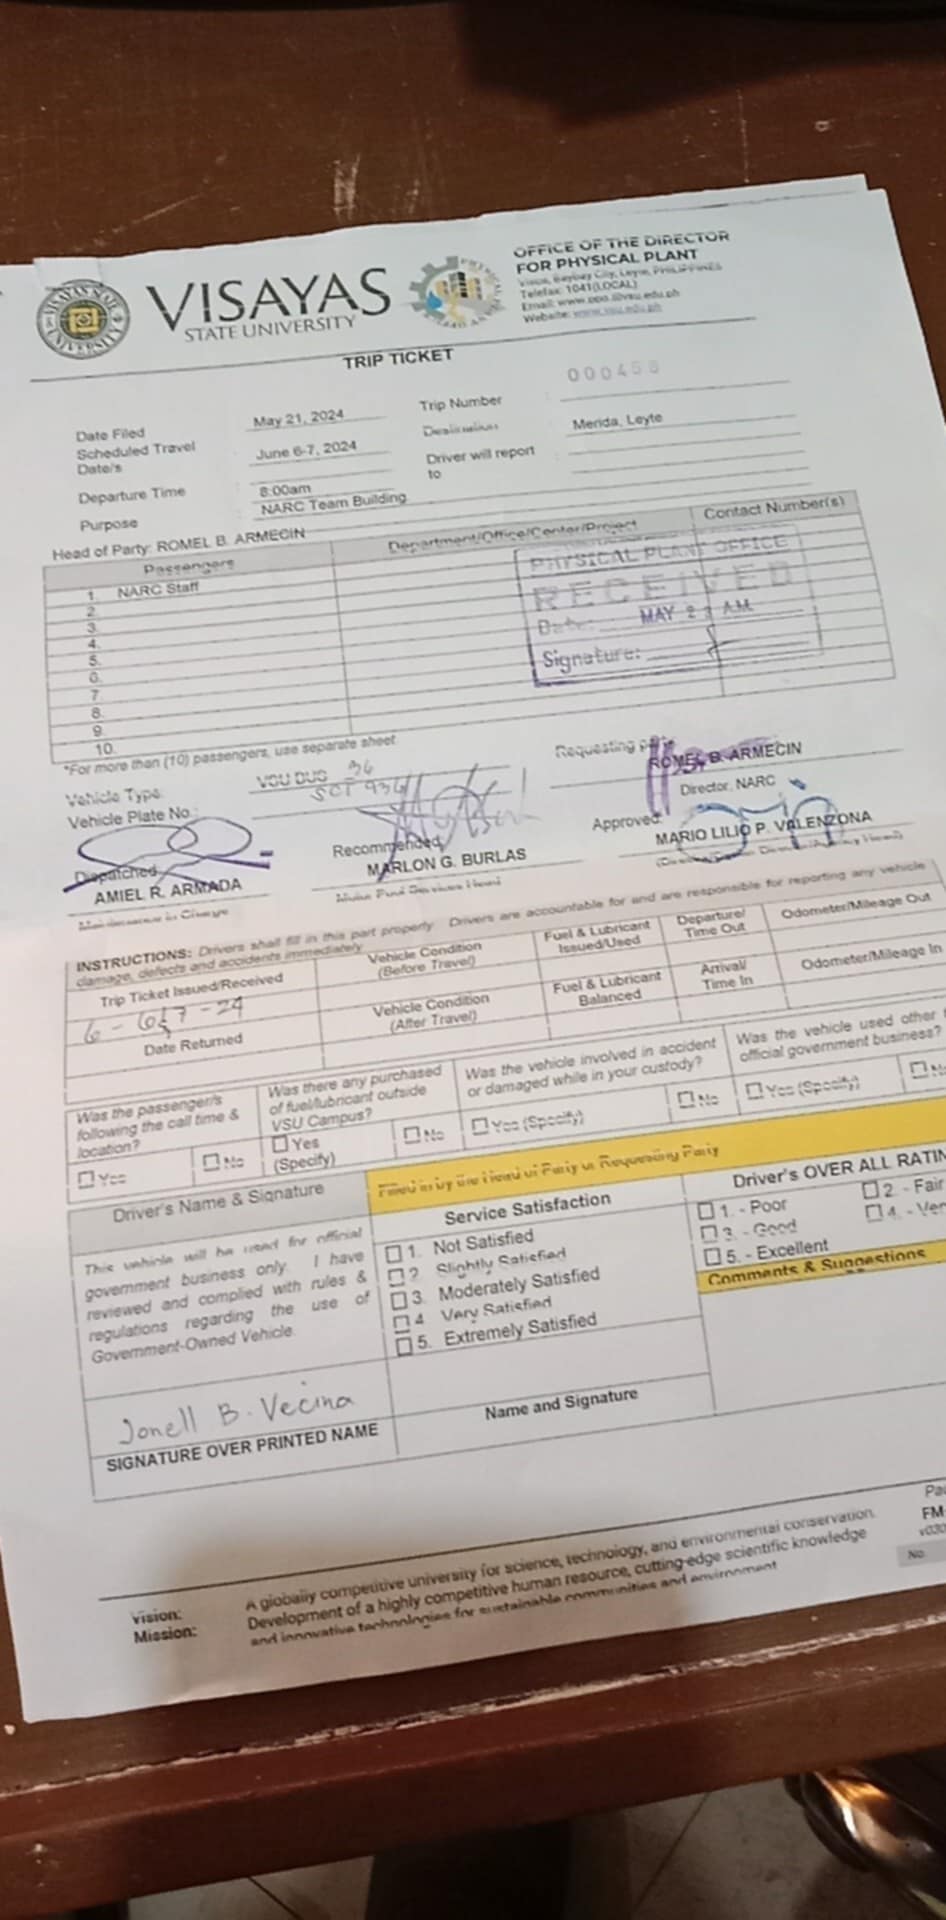 VISAYAS
STATE UNIVERSITY
OFFICE OF THE DIRECTOR
FOR PHYSICAL PLANT
Visca, Baybay City, Leyte, PHILIPPINES
Telefax: 1041(LOCAL)
Website: www.vsu.edu.ph
TRIP TICKET
Date Filed May 21, 2024 Trip Number
Scheduled Travel Date/s June 6-7, 2024 Destination Merida, Leyte
Departure Time 8:00am Driver will report to
Purpose NARC Team Building
Head of Party: ROMEL B. ARMECIN
Passengers Department/Office/Center/Project Contact Number(s)
1. NARC Staff
2.
3.
4.
5.
6.
7.
8.
9.
10.
PHYSICAL PLANT OFFICE
RECEIVED
Date: MAY A.M.
Signature:
*For more than (10) passengers, use separate sheet
Requesting
ROMEL B. ARMECIN
Director, NARC
Vehicle Type:
Vehicle Plate No.:
Dispatched
AMIEL R. ARMADA
Recommended
MARLON G. BURLAS
Approved:
MARIO LILIO P. VALENZONA
INSTRUCTIONS: Drivers shall fill in this part properly. Drivers are accountable for and are responsible for reporting any vehicle
damage, defects and accidents immediately
Trip Ticket Issued/Received Vehicle Condition (Before Travel) Fuel & Lubricant Issued/Used Departure/ Time Out Odometer/Mileage Out
Date Returned Vehicle Condition (After Travel) Fuel & Lubricant Balanced Arrival/ Time In Odometer/Mileage In
Was the passenger/s following the call time & location?
Was there any purchased of fuel/lubricant outside VSU Campus?
Was the vehicle involved in accident or damaged while in your custody?
Was the vehicle used other official government business?
Yes No Yes (Specify) No Yes (Specify) No Yes (Specify)
Driver's Name & Signature
Filled in by the Head of Party or Requesting Party
This vehicle will be used for official
government business only. I have
reviewed and complied with rules &
regulations regarding the use of
Government-Owned Vehicle.
Service Satisfaction
1. Not Satisfied
2. Slightly Satisfied
3. Moderately Satisfied
4. Very Satisfied
5. Extremely Satisfied
Driver's OVER ALL
1. - Poor 2. - Fair
3. - Good
5. - Excellent
Comments & Suggestions
Jonell B. Vecina
SIGNATURE OVER PRINTED NAME
Name and Signature
Vision: A globally competitive university for science, technology, and environmental conservation.
Mission: Development of a highly competitive human resource, cutting-edge scientific knowledge
and innovative technologies for sustainable communities and environment
No.